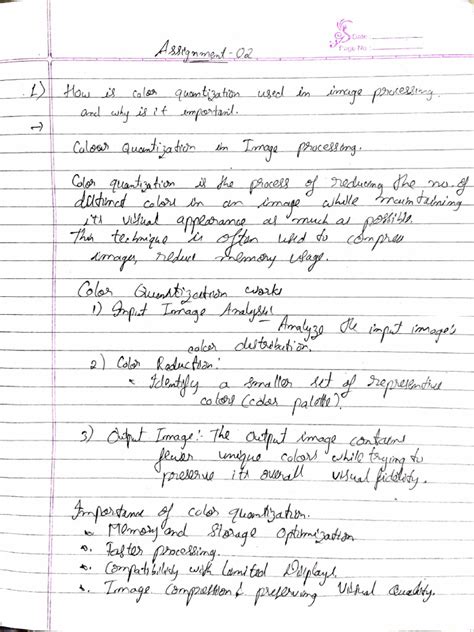 Date :
Page No :
Assignment - 02
1) How is color quantization used in image processing
and why is it important.
→
Colour Quantization in Image processing.
Color quantization is the process of reducing the no. of
distinct colors in an image while maintaining
its visual appearance as much as possible.
This technique is often used to compress
images, reduce memory usage.
Color Quantization works
1) Input Image Analysis:
Analyze the input image's
color distribution.
2) Color Reduction:
• Identify a smaller set of representive
colors (color palette).
3) Output Image: The output image contains
fewer unique colors while trying to
preserve its overall visual fidelity.
Importance of color quantization.
• Memory and Storage Optimization
• Faster processing.
• Compatibility with Limited Displays
• Image Compression & preserving Visual Quality.